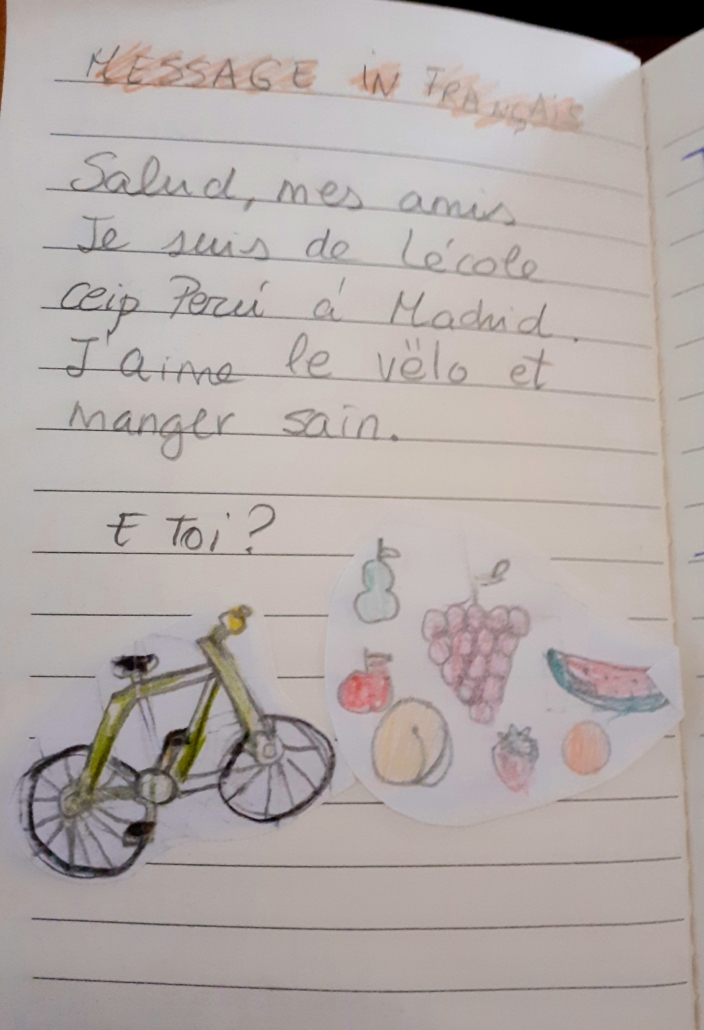 MESSAGE IN FRANÇAIS
Salud, mes amis
Je suis de lécole
ceip Perú á Madrid.
J'aime le vëlo et
manger sain.
E toi?